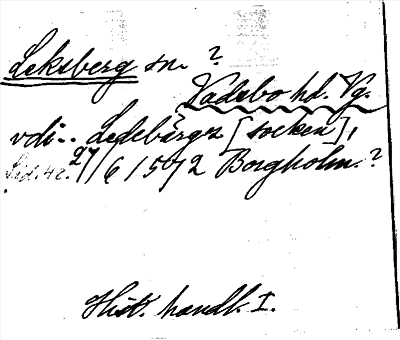 Leksberg sn. ?
Vadsbo hd. Vg.
vdi.. Ledebärgz [socken],
Sid. 42. 27/6 1572 Borgholm. ?
Hist. handl. I.